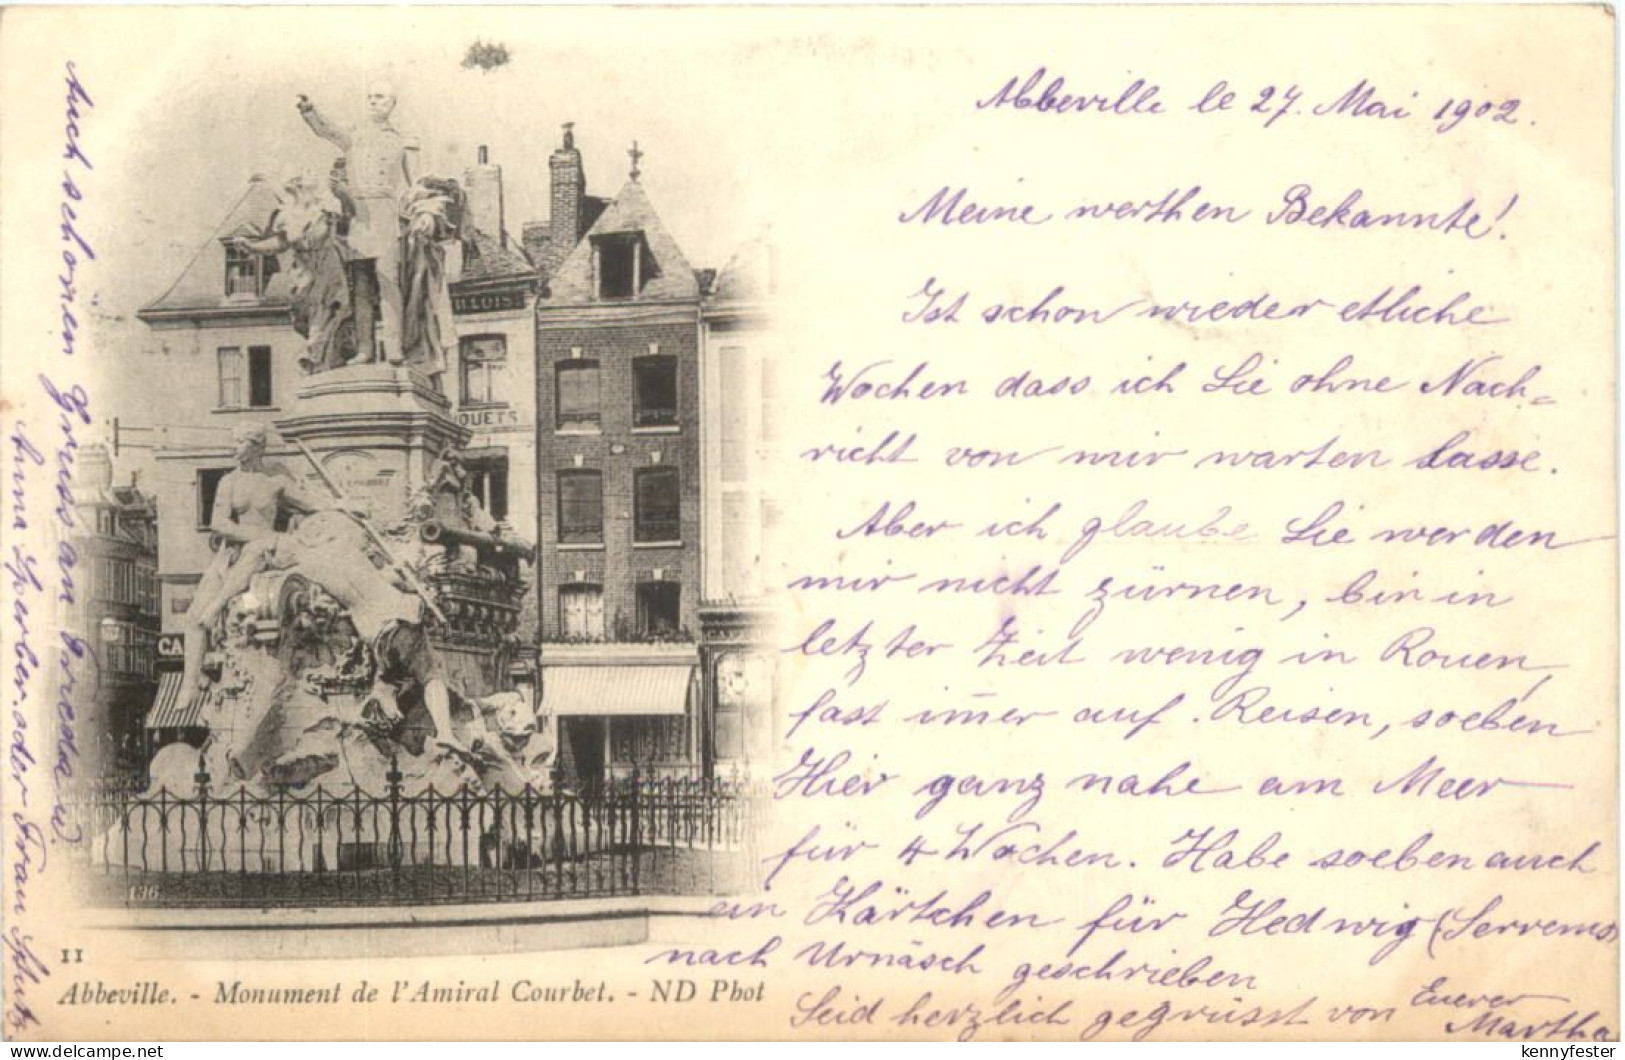 Abbeville le 27. Mai 1902.
Meine werthen Bekannte!
Ist schon wieder etliche
Wochen dass ich Sie ohne Nach=
richt von mir warten lasse.
Aber ich glaube Sie werden
mir nicht zürnen, bin in
letzter Zeit wenig in Rouen,
fast im̄er auf Reisen, soeben
Hier ganz nahe am Meer
für 4 Wochen. Habe soeben auch
ein Kärtchen für Hedwig
nach Urnäsch geschrieben
Seid herzlich gegrüsst von Euerer
Martha
Auch schönen Gruss an Frieda u.
Anna Sperber oder Frau Schutz
LLOIS
JOUETS
CA
136
11
Abbeville. - Monument de l'Amiral Courbet. - ND Phot
delcampe.net
kennyfester